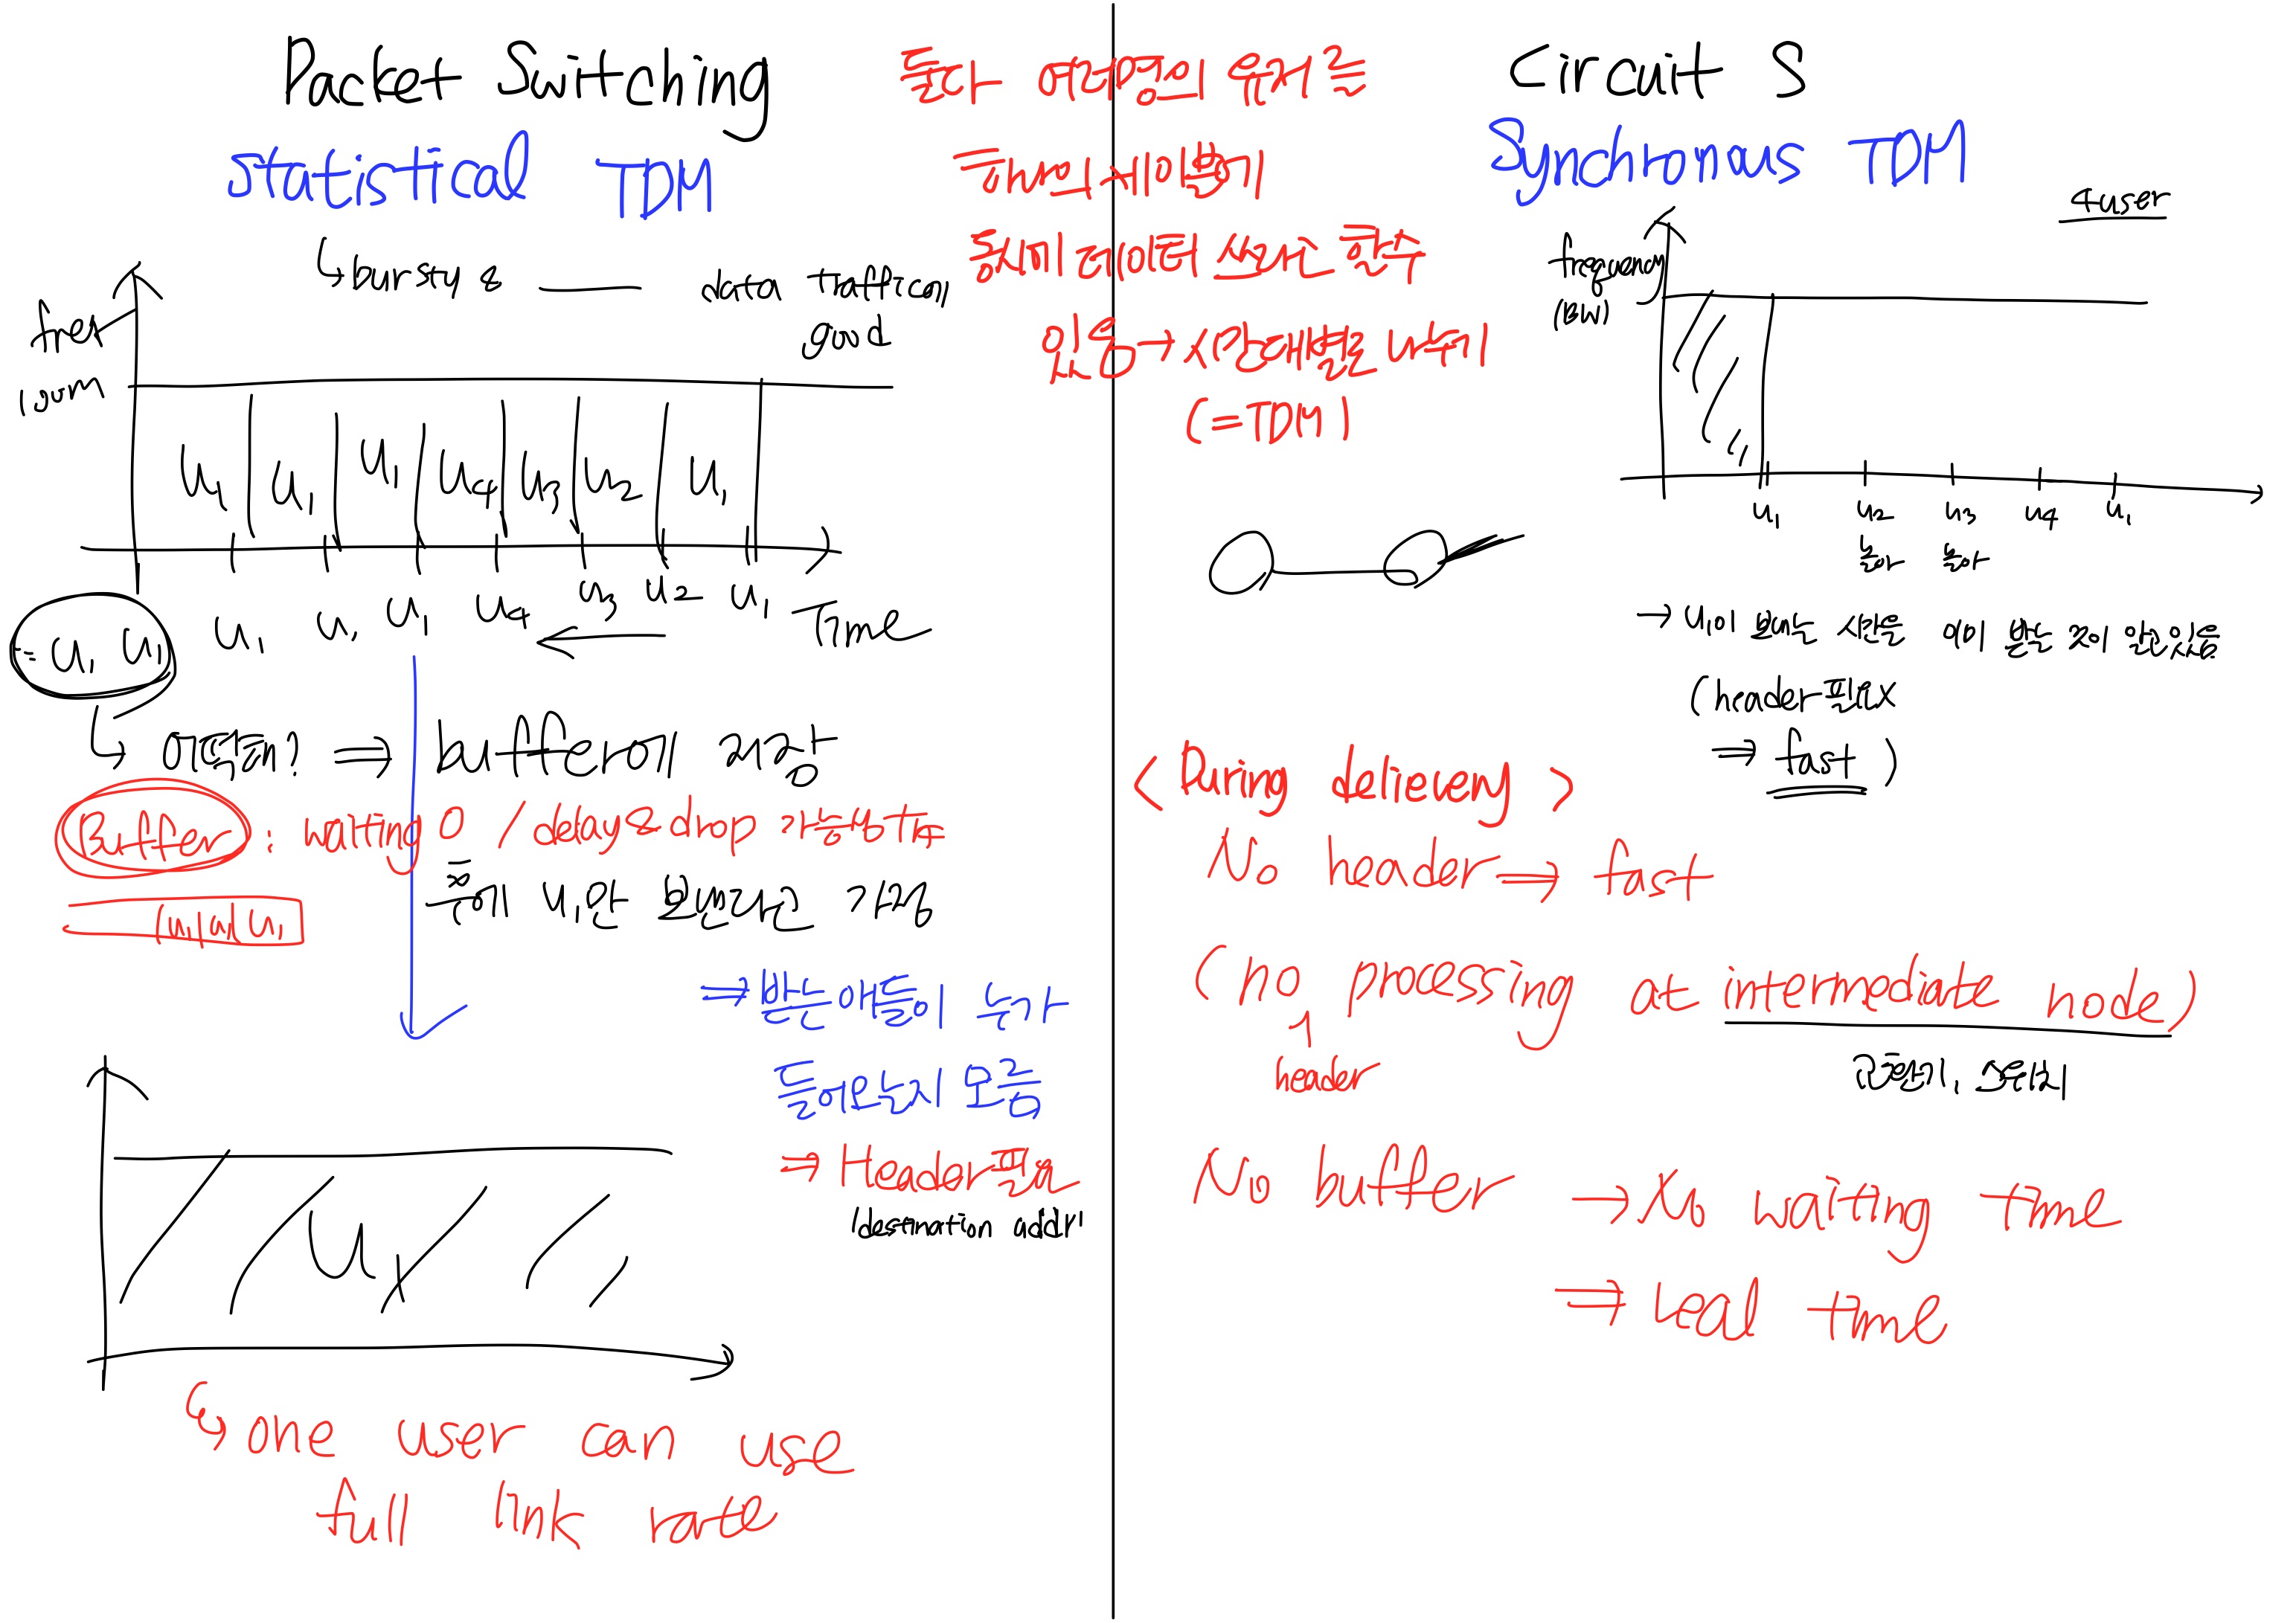 Packet Switching
statistical TDM
bursty &
data traffic이
good
u1 u1 u1 u4 u3 u2 u1
u1 u1 u1 u4 u3 u2 u1 Time
u1 u1
어떡해? ⇒ buffer에 저장
Buffer : waiting O / delay & drop 가능성 ↑
u1 u1 u1
중에 u1만
가정
⇒ 받는 애들이 누가
들어오는지 모름
⇒ Header 필요
destination addr
u1
one user can use
full link rate
둘다 여러명의 유저를
동시에 데이터 쓰려는 할수
있음 → 시간대별로 나누기
(=TDM)
Circuit S
Synchronous TDM
4user
frequency
(BW)
u1 u2 u3 u4 u1
놀아 놀아
→ u1이 보내는 시간을 이미 받는 것이 알고있음
(header 필요 X
⇒ fast )
< During delievery >
No header ⇒ fast
(no processing at intermediate node)
header
교환기,
No buffer → No waiting time
⇒ real time